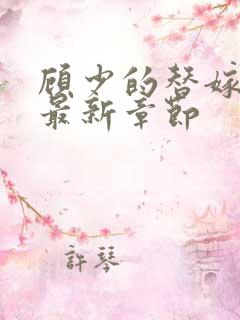 顾少的替嫁
最新章节
許琴